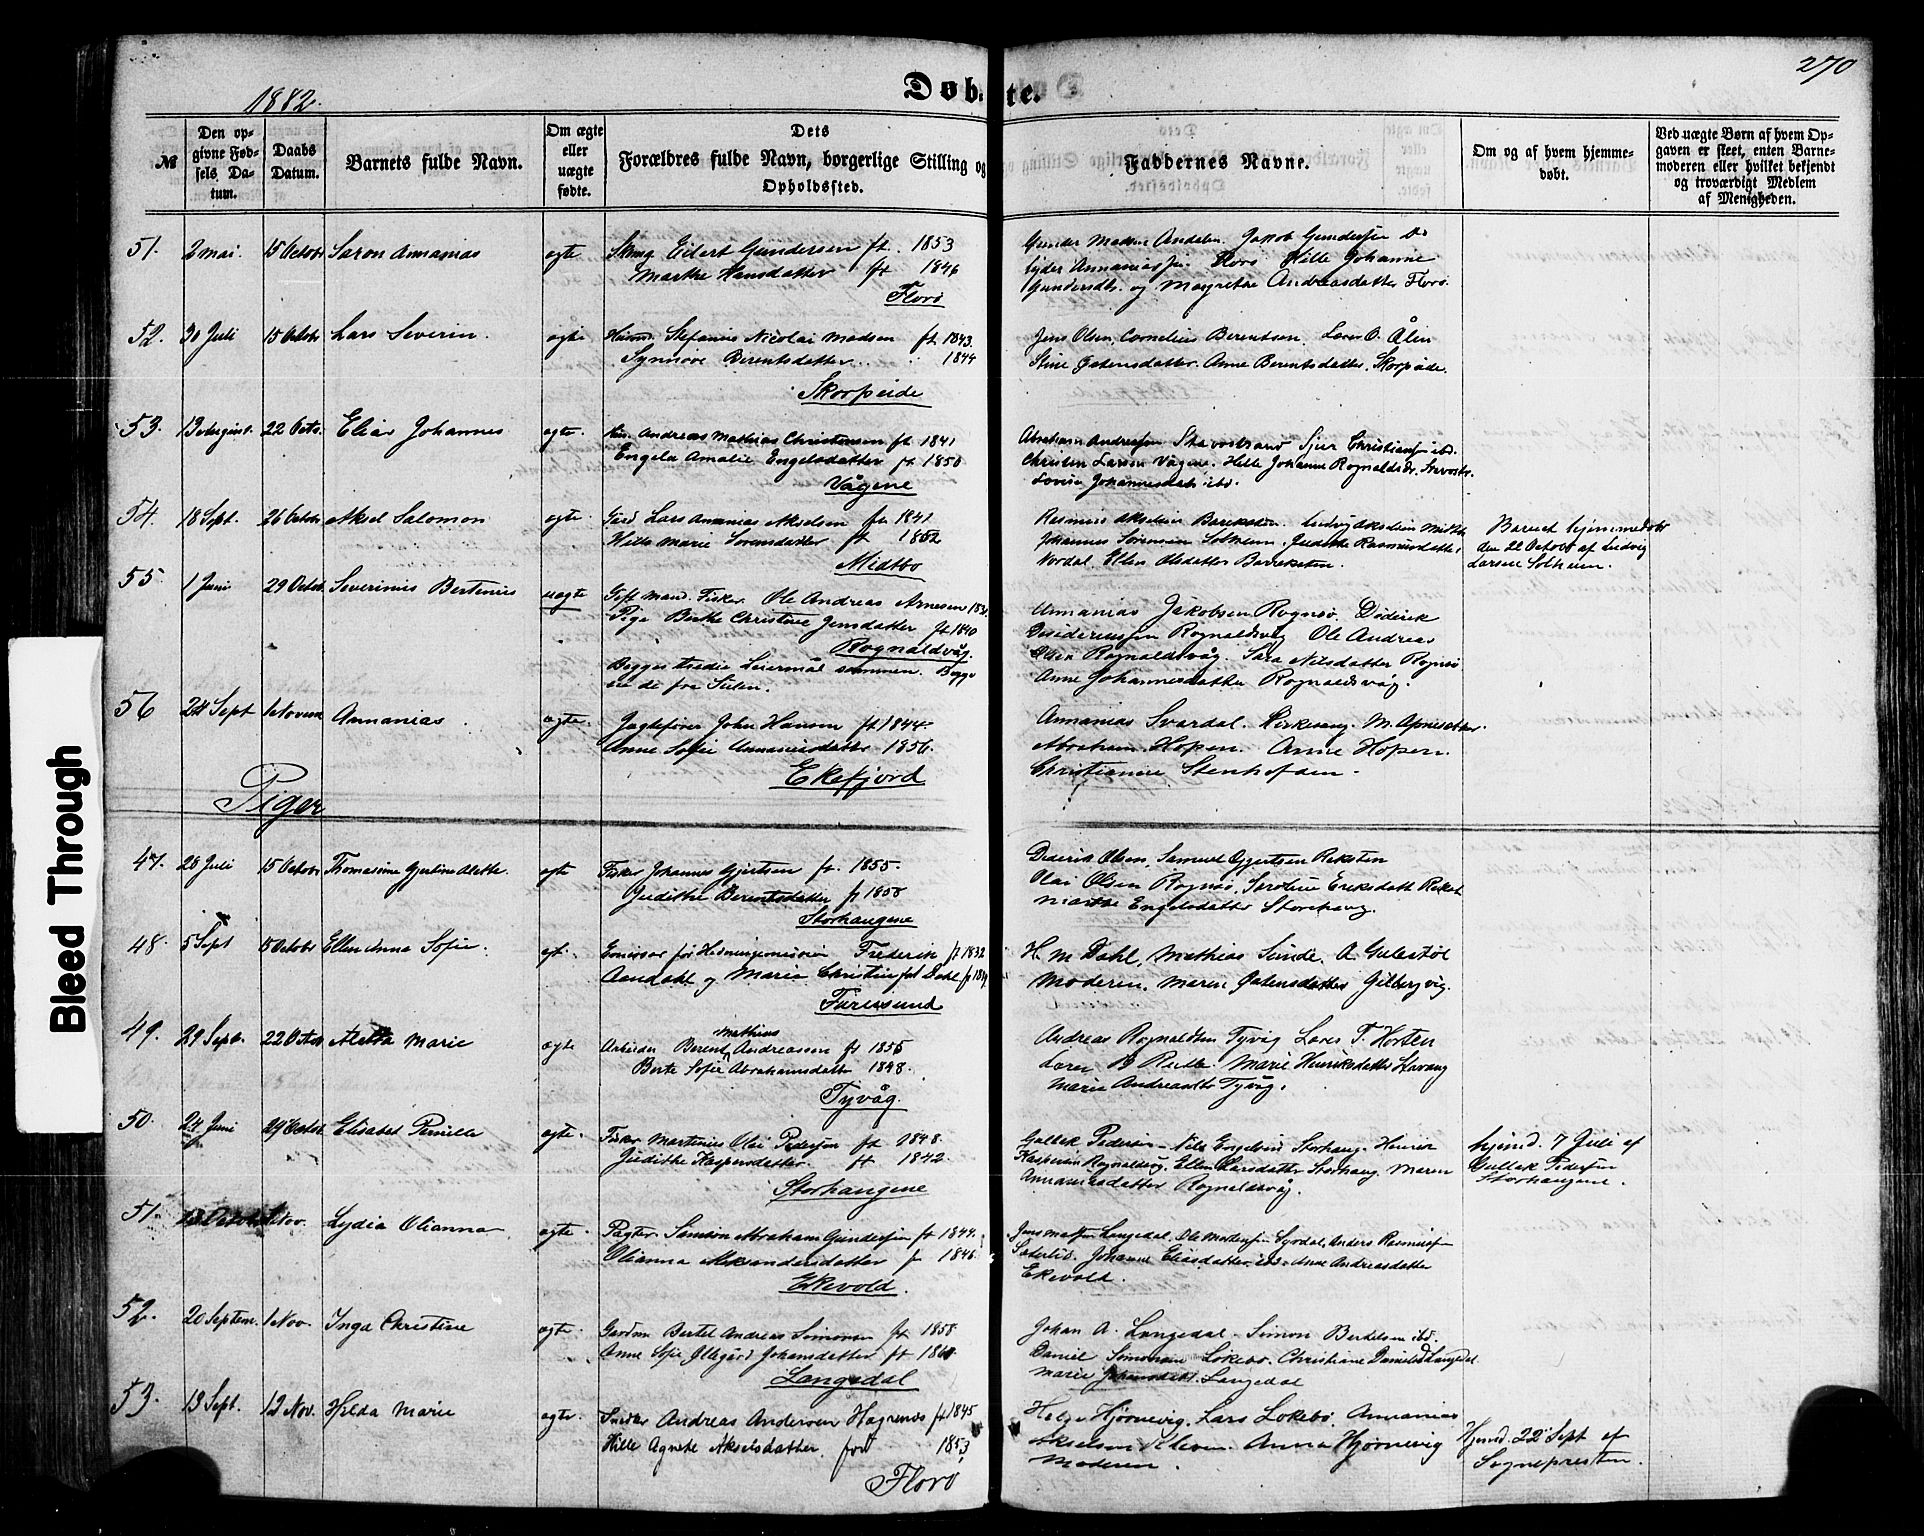 270
1882.
Døbte.
№
Den opgivne Fødsels Datum.
Daabs Datum.
Barnets fulde Navn.
Om ægte eller uægte fødte.
Dets Forældres fulde Navn, borgerlige Stilling og Opholdssted.
Faddernes Navne.
Om og af hvem hjemmedøbt.
Ved uægte Børn af hvem Opgaven er skeet, enten Barnemoderen eller hvilket bekjendt og troværdigt Medlem af Menigheden.
51. 2 Mai. 15 Octobr Saron Annanias ægte Eilert Gundersen ft. 1853
Marthe Hansdatter ft 1846
Florø
Gunder Madsen Jakob Gundersen
Annanias Florø Hille Johanne
Gundersdtr. og Margrethe Andreasdatter Florø.
52. 30 Juli 15 Octobr Lars Severin. ægte Stefanus Nicolai Madsen ft 1843.
Synnøve Berentsdatter 1844
Skorpeide
Jens Olsen, Cornelius Berentsen. Lars O. Ålin
Stine Østensdatter. Anne Berentsdatter. Skorpeide.
53. 13 August. 22 Octo. Elias Johannes ægte. Andreas Mathias Christensen ft 1841
Engela Amalie Engelsdatter ft 1850
Vågene
Abraham Andersen Stavostrand Sjur Christiansen ibd.
Christen Larsen Vågene, Hille Johanne Rognaldsdr.
Lovise Johannesdatr ibd.
54. 18 Sept. 26 Octobr Aksel Salomon ægte. Lars Ananias Akselsen ft 1841
Hille Marie Sørensdatter ft 1852
Midtbø
Rasmus Akselsen Bareksten. Ludvig Akselsen Midtb.
Johannes Sørensen Solheim. Judithe Rasmusdatter
Nordal. Ellen Olsdatter Barreksten.
Barnet hjemmedøbt
den 22 Octobr af Ludvig
Larsen Solheim.
55 1 Juni 29 Octobr Severinus Bertinius uægte Gift Mand. Fisker Ole Andreas Arnesen
Pige Berthe Christine Jensdatter ft 1840
Rognaldvåg.
Begges tredie Leiermål sammen. Begge
ere de fra
Annanias Jakobsen Rognsø. Diderik
Rognaldsvåg Ole Andreas
Olsen Rognaldsvåg. Sara Nilsdatter Rognsø
Anne Johannesdatter Rognaldsvåg.
56 24 Sept 1 Novem Annanias. ægte. Jagtefører John Hansen ft 1844.
Anne Sofie Annaniasdatter 1856.
Ekefjord
Annanias Svardal. M.
Abraham Hopen. Anne Hopen.
Christianne
Piger
47. 28 Juli 15 Octobr Thomasine Gjertine Alette. ægte Fisker Johannes Gjertsen ft. 1855.
Judithe Berentsdatter ft 1858
Storhaugene
Diderik Olsen, Samuel Gjertsen Reksten
Olai Olsen Rognsø, Eriksdatt
Marthe Engelsdatter Storehaug.
48. 5 Sept 15 Octobr Ellen Anna Sofie. Frederik ft 1832
Aandahl og Marie Christin føt Dahl
Furusund
H. M Dahl, Mathias Sunde. A. Gulestøl
Moderen. Maren Østensdatter Gilbergvig.
49. 29 Sept. 22 Octob Aletta Marie ægte Arbeider Berent Mathias Andreassen ft 1855
Berte Sofie Abrahamsdatt 1848.
Tyvåg.
Andreas Rognaldsen Tyvig Lars T. Horten
Marie Henriksdatter Stavang
Marie Andreasdtr Tyvåg.
50. 24 Juni 29 Octob Elisabet Pernille ægte. Fisker Martinus Olai Pedersen ft 1848.
Judithe Kaspersdatter ft 1842.
Storhaugene
Gullak Pedersen Nils Engelsen Storhaug.
Kaspersen Rognaldsvåg, Ellen Larsdatter Storhaug. Maren
Annaniasdatter Rognaldsvåg.
hjemd. 7 Juli af
Gullak Pedersen
Storhaugene.
51. Octobr Nov. Lydia Olianna ægte. Pagter. Samson Abraham Gundersen ft 1844.
Olianna Aleksandersdatter 1846.
Ekevold.
Jens Madsen Langedal. Ole Mortensen Anders Rasmusen
Johanne Eliasdatter ibd. Anne Andreasdatter
Ekevold.
52. 20 Septem. 1 Nov. Inga Christine ægte. Gardm Bertel Andreas Simonsen ft 1858
Anne Sofie Illegård Johansdatter ft 1860
Langedal
Johan A. Langedal. Simon Bertelsen ibd.
Daniel Simonsen Løkebø. Christiane Langedal
Marie Langedal
53. 13 Sept. 12 Nov. Hilda Marie ægte. Snedker Andreas Andersen ft 1845
Hille Agnete Akselsdatter. født 1853
Florø
Helge Hjørnevig. Lars Løkebø. Annanias
Akselsen Anna Hjørnevig
Moderen.
Hjemd. 22 Sept af
Sognepresten.
Bleed Through